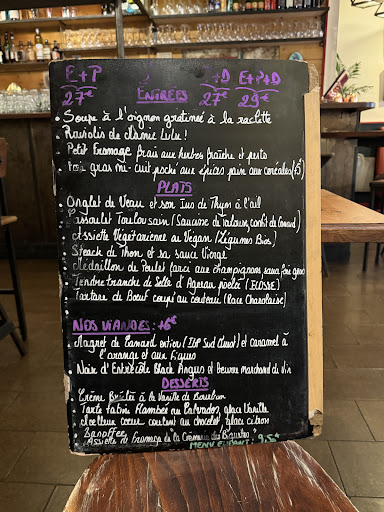 E+P +D E+P+D
27€ ENTREES 27€ 29€
Soupe à l'oignon gratinée à la raclette
Raviolis de mamie Lulu!
Petit Fromage frais aux herbes fraîche et pesto
Foie gras mi-cuit poché aux épices pain aux céréales (+5€)
PLATS
Onglet de Veau et son Jus de Thym à l'ail
Cassoulet Toulousain (Saucisse de Toulouse, confit de Canard)
Assiette Végétarienne ou Vegan (Légumes Bio)
Steack de Thon et sa sauce Vierge
Médaillon de Poulet farci aux champignons sauce foie gras
Tendre tranche de Selle d'Agneau poêlée (ECOSSE)
Tartare de Boeuf coupé au couteau (Race Charolaise)
NOS VIANDES: +6€
Magret de Canard entier (IGP Sud Ouest) et Caramel à
l'orange et aux figues
Noix d'Entrecôte Black Angus et beurre marchand de vin
DESSERTS
Crème Brûlée à la Vanille de Bourbon
Tarte tatin Flambée au Calvados, glace Vanille
Moelleux coeur coulant au chocolat, glace citron
Banoffee
Assiette de Fromage de "la Crèmerie des
MENU ENFANT: 9,5€